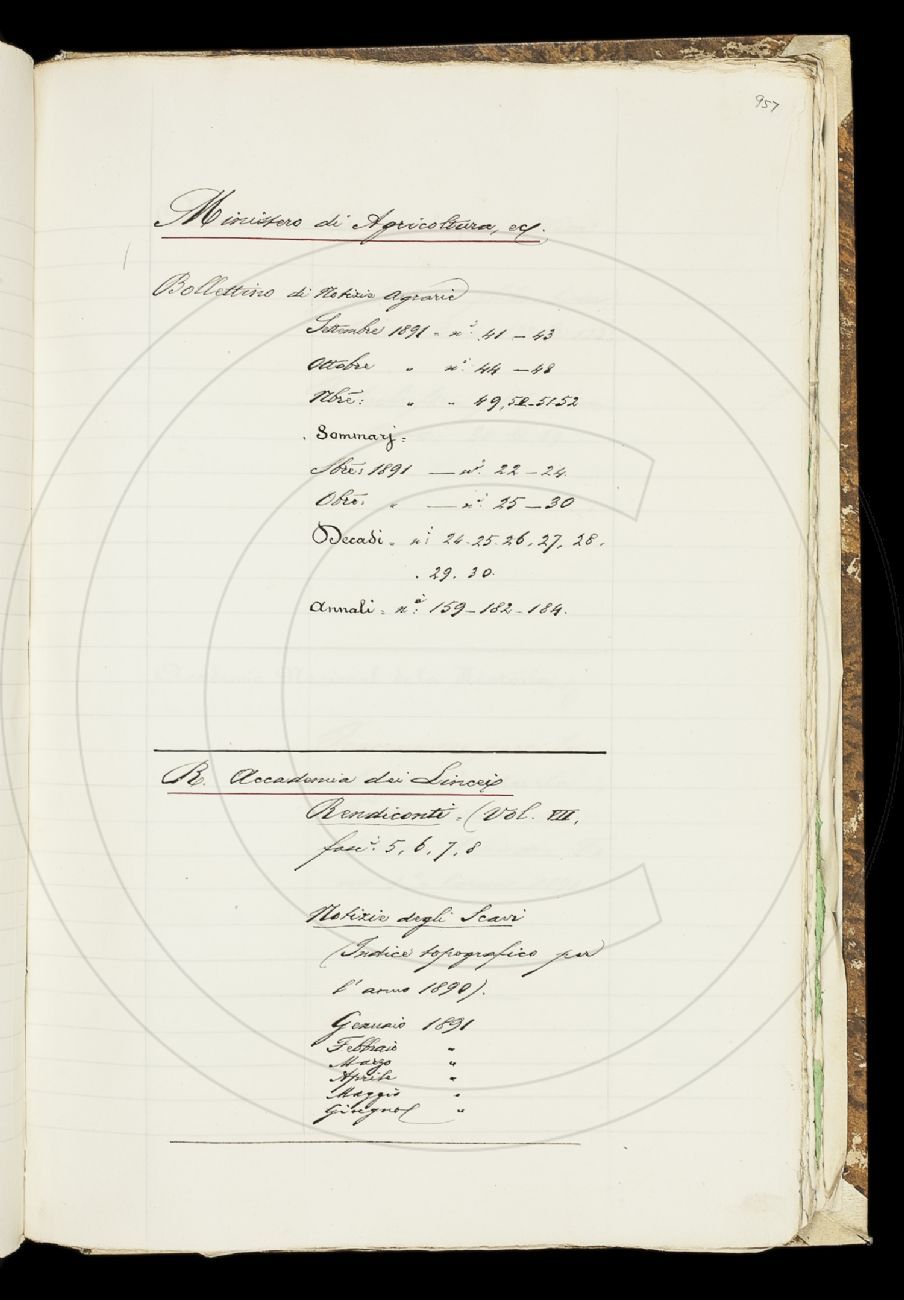 957
Ministero di Agricoltura, ec.
Bollettino di Notizie Agrarie
Settembre 1891 - n.i 41 - 43
Ottobre " n.i 44 - 48
Nbre: " " 49, 50-51 52
Sommarj =
Sbre: 1891 — n.i 22 - 24
Obre: " — n.i 25 - 30
Decadi " n.i 24. 25. 26. 27. 28.
. 29. 30.
Annali = n.i: 159 - 182 - 184.
R. Accademia dei Lincei
Rendiconti = (Vol. VII,
fasc.i 5, 6, 7, 8
Notizie degli Scavi
(Indice topografico per
l'anno 1890).
Gennaio 1891
Febbraio "
Marzo "
Aprile "
Maggio "
Giugno "